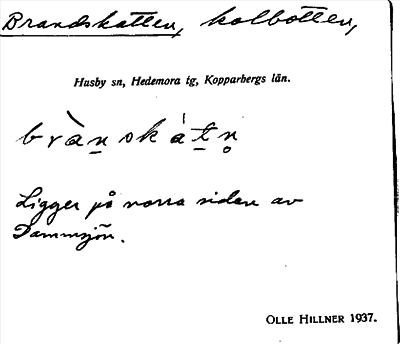 Brandskatten, kolbotten,
Husby sn, Hedemora tg, Kopparbergs län.
brànskátn̥
Ligger på norra sidan av
Dammsjön.
OLLE HILLNER 1937.